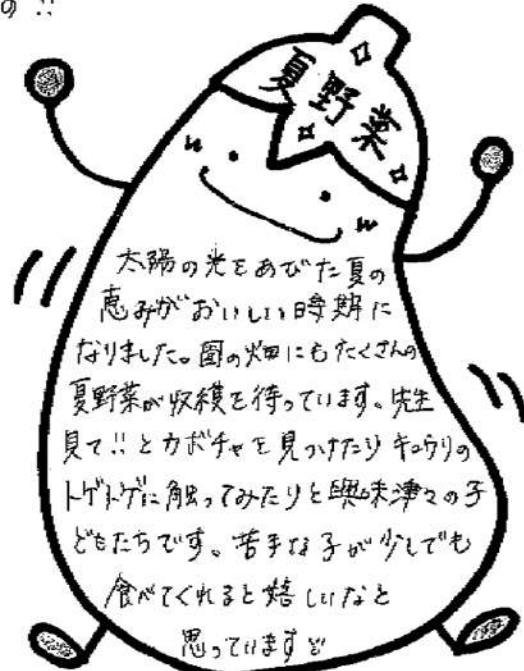 の!!
夏野菜
太陽の光をあびた夏の
恵みがおいしい時期に
なりました。園の畑にもたくさんの
夏野菜が収穫を待っています。先生
見て!!とカボチャを見つけたりキュウリの
トゲトゲに触ってみたりと興味津々の子
どもたちです。苦手な子が少しでも
食べてくれると嬉しいなと
思っています